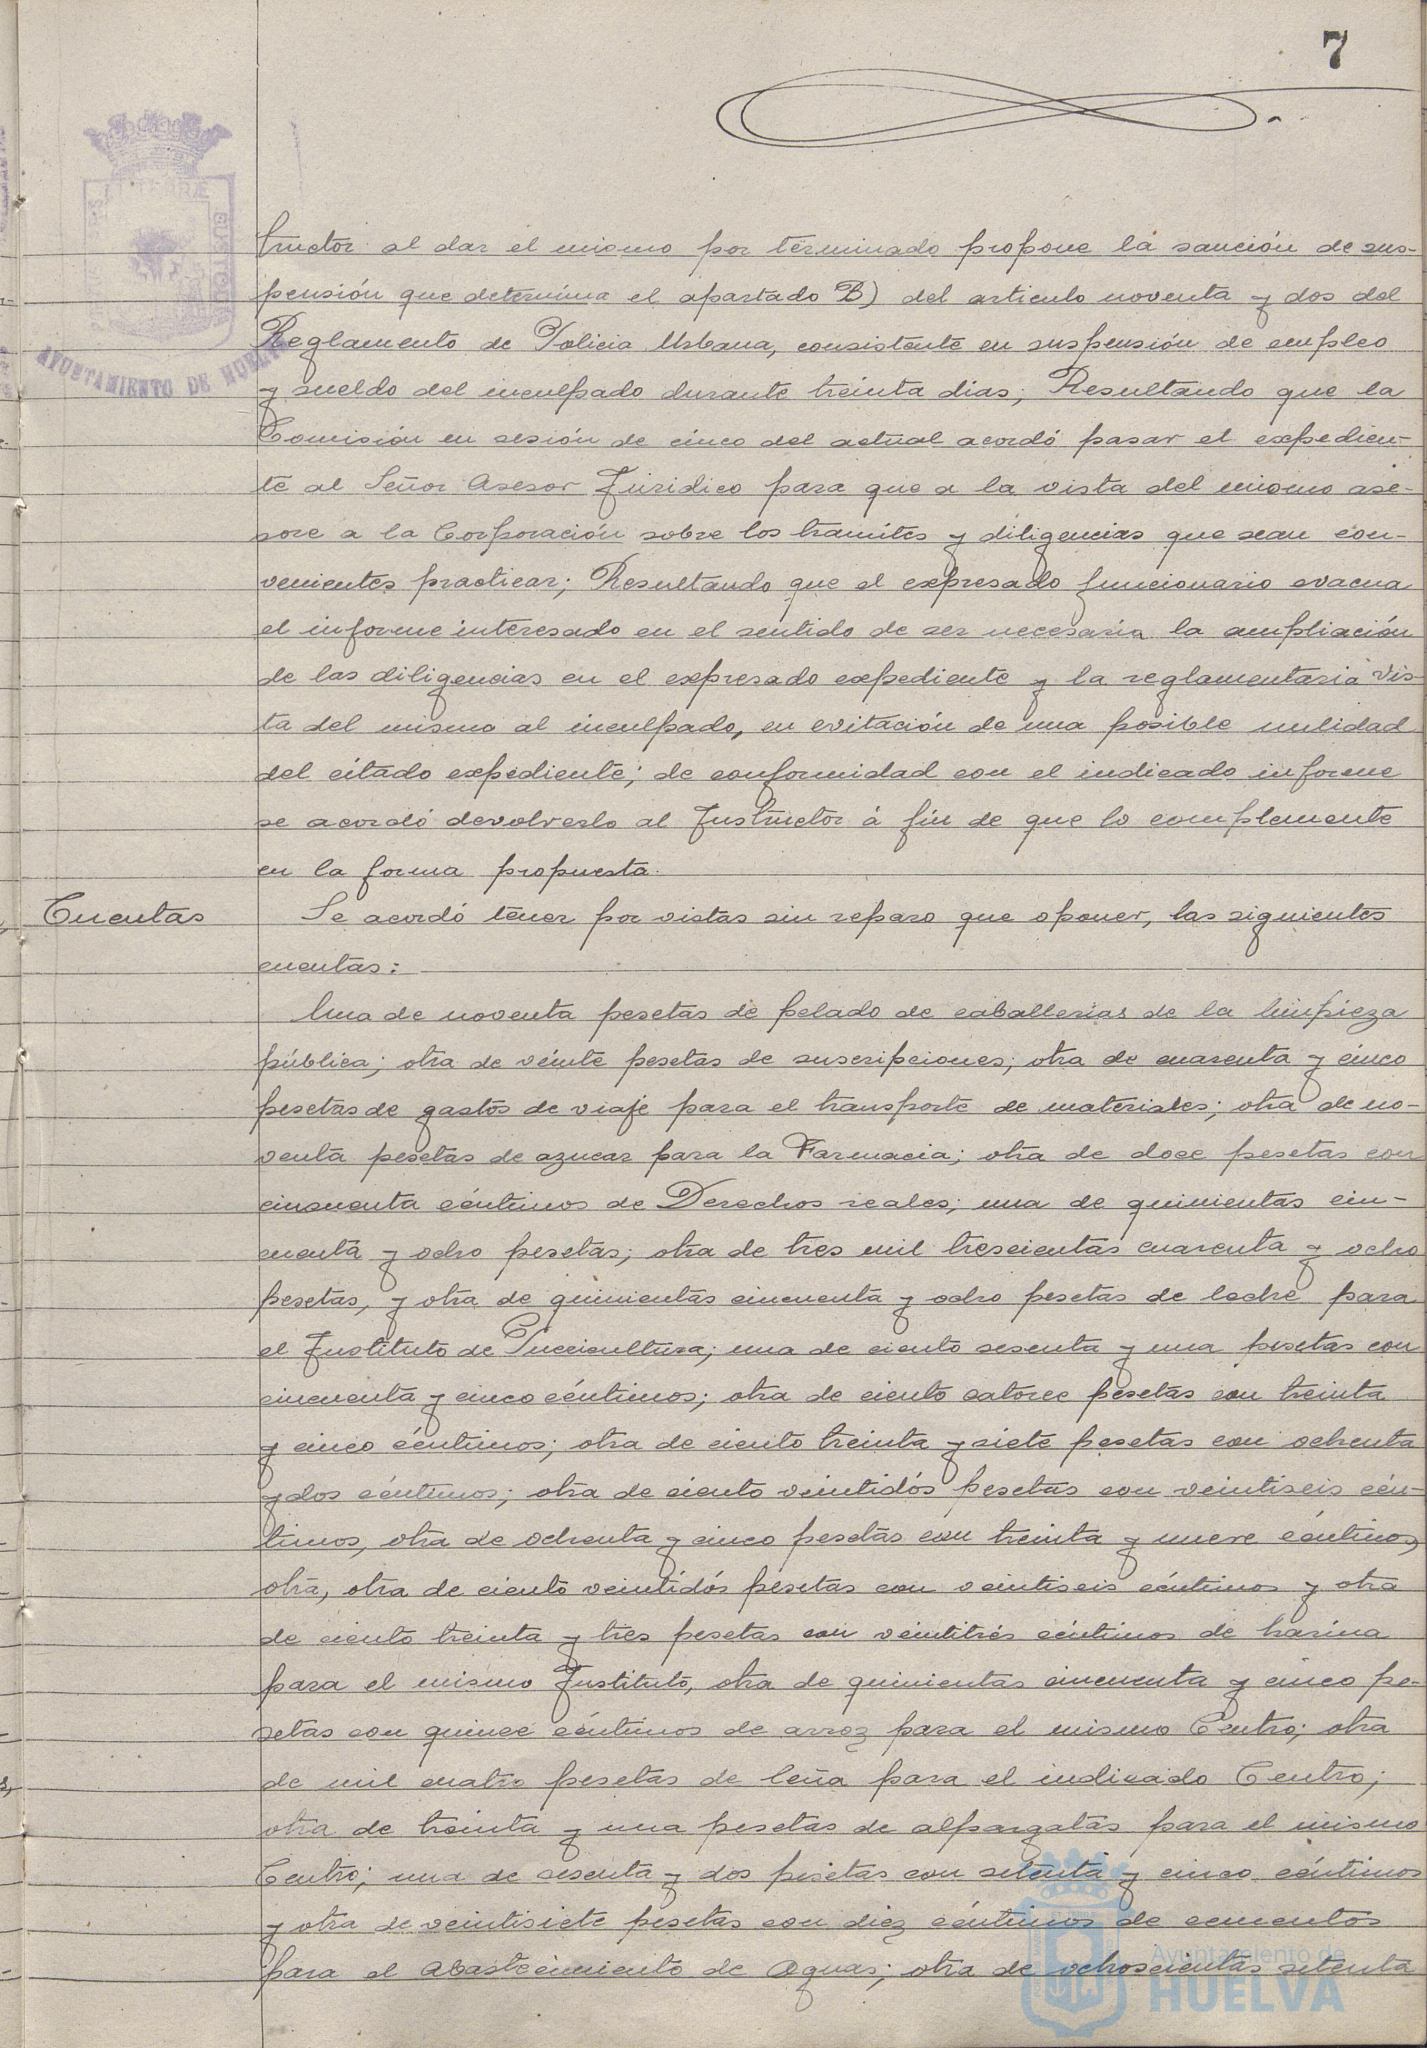 7
tructor al dar el mismo por terminado propone la sanción de sus-
pensión que determina el apartado B) del articulo noventa y dos del
Reglamento de Policia Urbana, consistente en suspensión de empleo
y sueldo del inculpado durante treinta dias; Resultando que la
Comisión en sesión de cinco del actual acordó pasar el expedien-
te al Señor Asesor Juridico para que a la vista del mismo ase-
sore a la Corporación sobre los tramites y diligencias que sean con-
venientes practicar; Resultando que el expresado funcionario evacua
el informe interesado en el sentido de ser necesaria la ampliación
de las diligencias en el expresado expediente y la reglamentaria vis-
ta del mismo al inculpado, en evitación de una posible nulidad
del citado expediente; de conformidad con el indicado informe
se acordó devolverlo al Instructor á fin de que lo complemente
en la forma propuesta.
Cuentas
Se acordó tener por vistas sin reparo que oponer, las siguientes
cuentas:
Una de noventa pesetas de pelado de caballerias de la limpieza
pública; otra de veinte pesetas de suscripciones; otra de cuarenta y cinco
pesetas de gastos de viaje para el transporte de materiales; otra de no-
venta pesetas de azucar para la Farmacia; otra de doce pesetas con
cincuenta céntimos de Derechos reales; una de quinientas cin-
cuenta y ocho pesetas; otra de tres mil trescientas cuarenta y ocho
pesetas, y otra de quinientas cincuenta y ocho pesetas de leche para
el Instituto de Puericultura; una de ciento sesenta y una pesetas con
cincuenta y cinco céntimos; otra de ciento catorce pesetas con treinta
y cinco céntimos; otra de ciento treinta y siete pesetas con ochenta
y dos céntimos; otra de ciento veintidós pesetas con veintiseis cén-
timos, otra de ochenta y cinco pesetas con treinta y nueve céntimos,
otra, otra de ciento veintidós pesetas con veintiseis céntimos y otra
de ciento treinta y tres pesetas con veintitrés céntimos de harina
para el mismo Instituto, otra de quinientas cincuenta y cinco pe-
setas con quince céntimos de arroz para el mismo Centro; otra
de mil cuatro pesetas de leña para el indicado Centro;
otra de treinta y una pesetas de alpargatas para el mismo
Centro; una de sesenta y dos pesetas con setenta y cinco céntimos
y otra de veintisiete pesetas con diez céntimos de cementos
para el abastecimiento de Aguas; otra de ochocientas setenta
AYUNTAMIENTO DE HUELVA
Ayuntamiento de
HUELVA